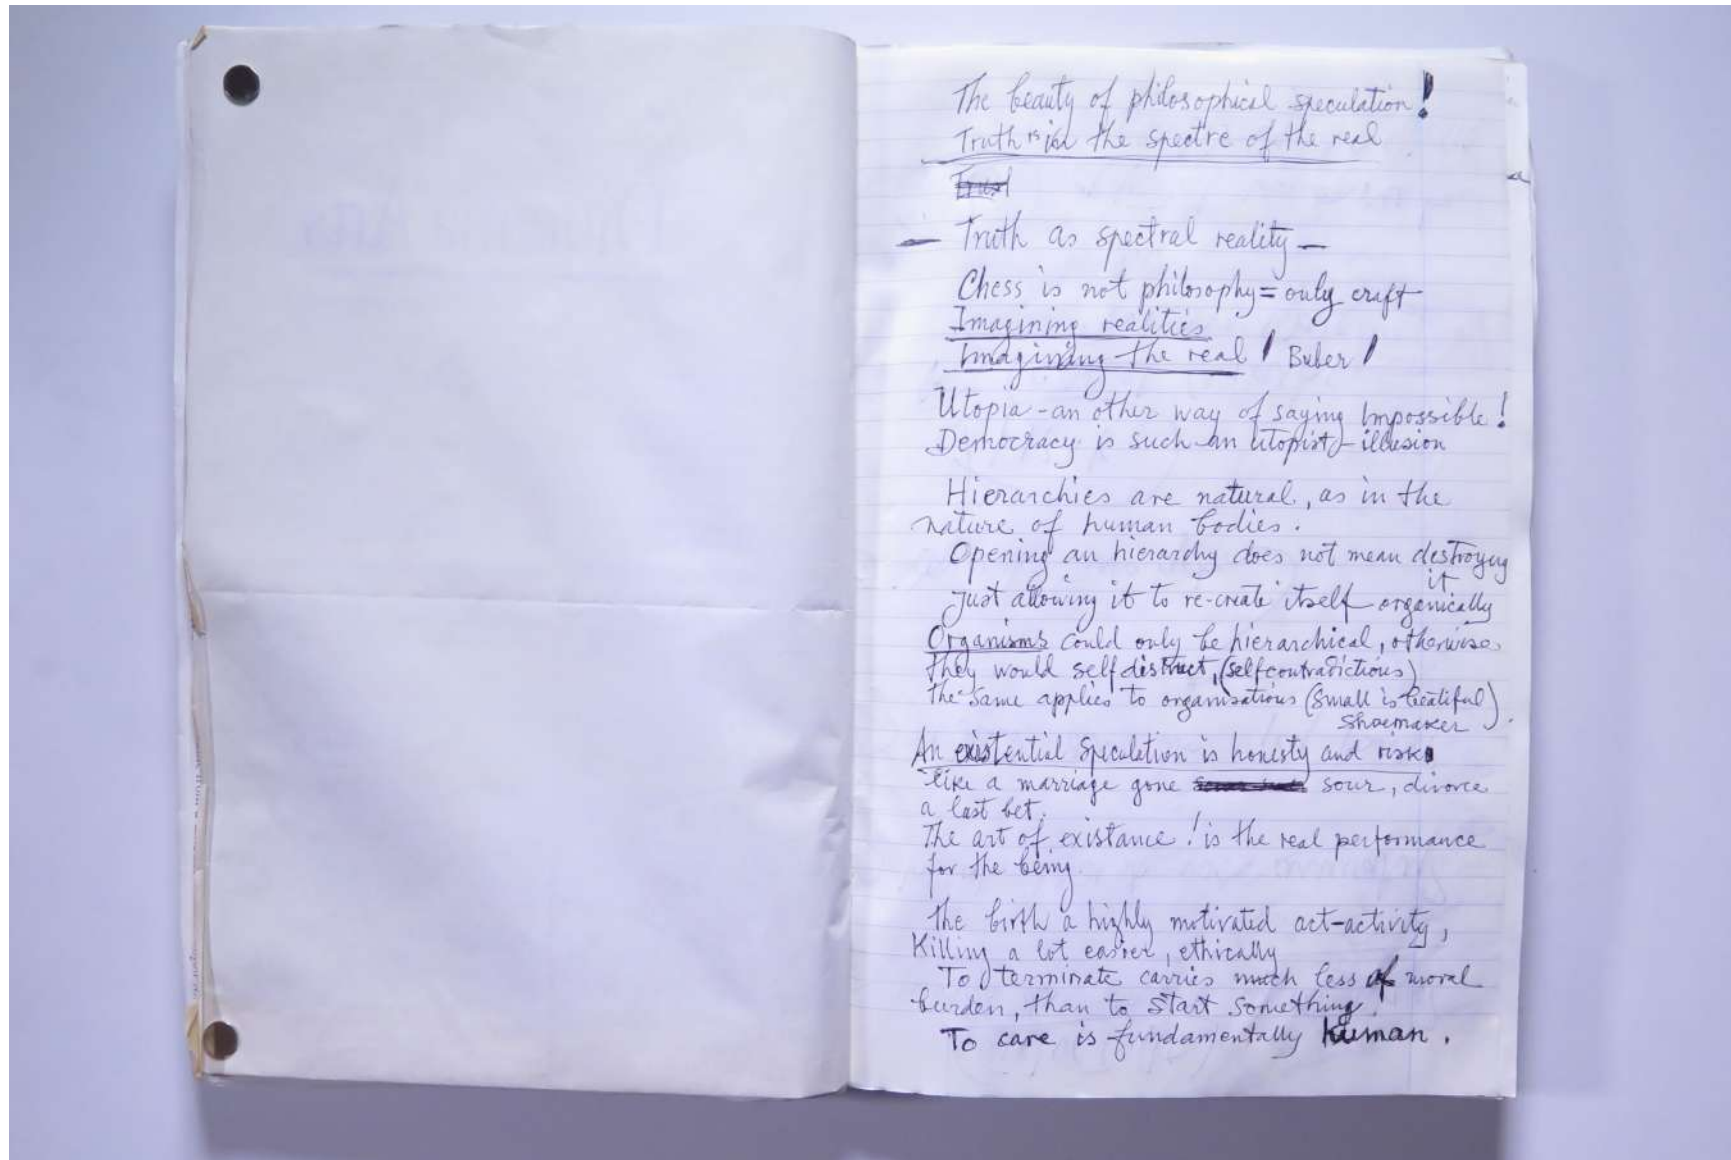 The beauty of philosophical speculation!
Truth is in the spectre of the real
— Truth as spectral reality —
Chess is not philosophy = only craft
Imagining realities
Imagining the real / Buber /
Utopia - an other way of saying Impossible!
Democracy is such an utopist - illusion
Hierarchies are natural, as in the
nature of human bodies.
Opening an hierarchy does not mean destroying
it
just allowing it to re-create itself organically
Organisms could only be hierarchical, otherwise
they would self distruct, (selfcontradictions)
the same applies to organisations (small is beatiful)
Shoemaker
An existential speculation is honesty and risk
like a marriage gone sour, divorce
a last bet.
The art of existance! is the real performance
for the being
The birth a highly motivated act-activity,
Killing a lot easier, ethically
To terminate carries much less of moral
burden, than to start something.
To care is fundamentally human.